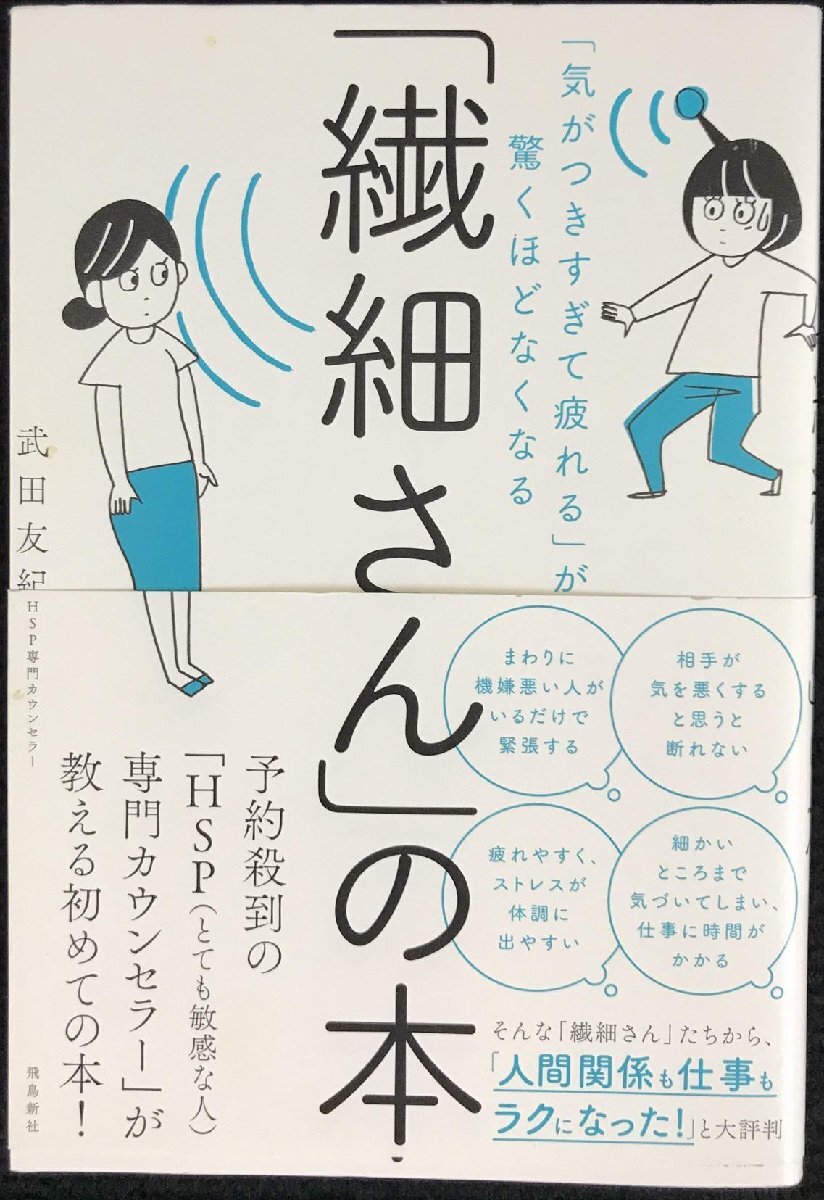 「気がつきすぎて疲れる」が
驚くほどなくなる
「繊細さん」の本
武田友紀
HSP専門カウンセラー
まわりに
機嫌悪い人が
いるだけで
緊張する
相手が
気を悪くする
と思うと
断れない
疲れやすく、
ストレスが
体調に
出やすい
細かい
ところまで
気づいてしまい、
仕事に時間が
かかる
予約殺到の
「HSP(とても敏感な人)
専門カウンセラー」が
教える初めての本!
そんな「繊細さん」たちから、
「人間関係も仕事も
ラクになった!」と大評判
飛鳥新社